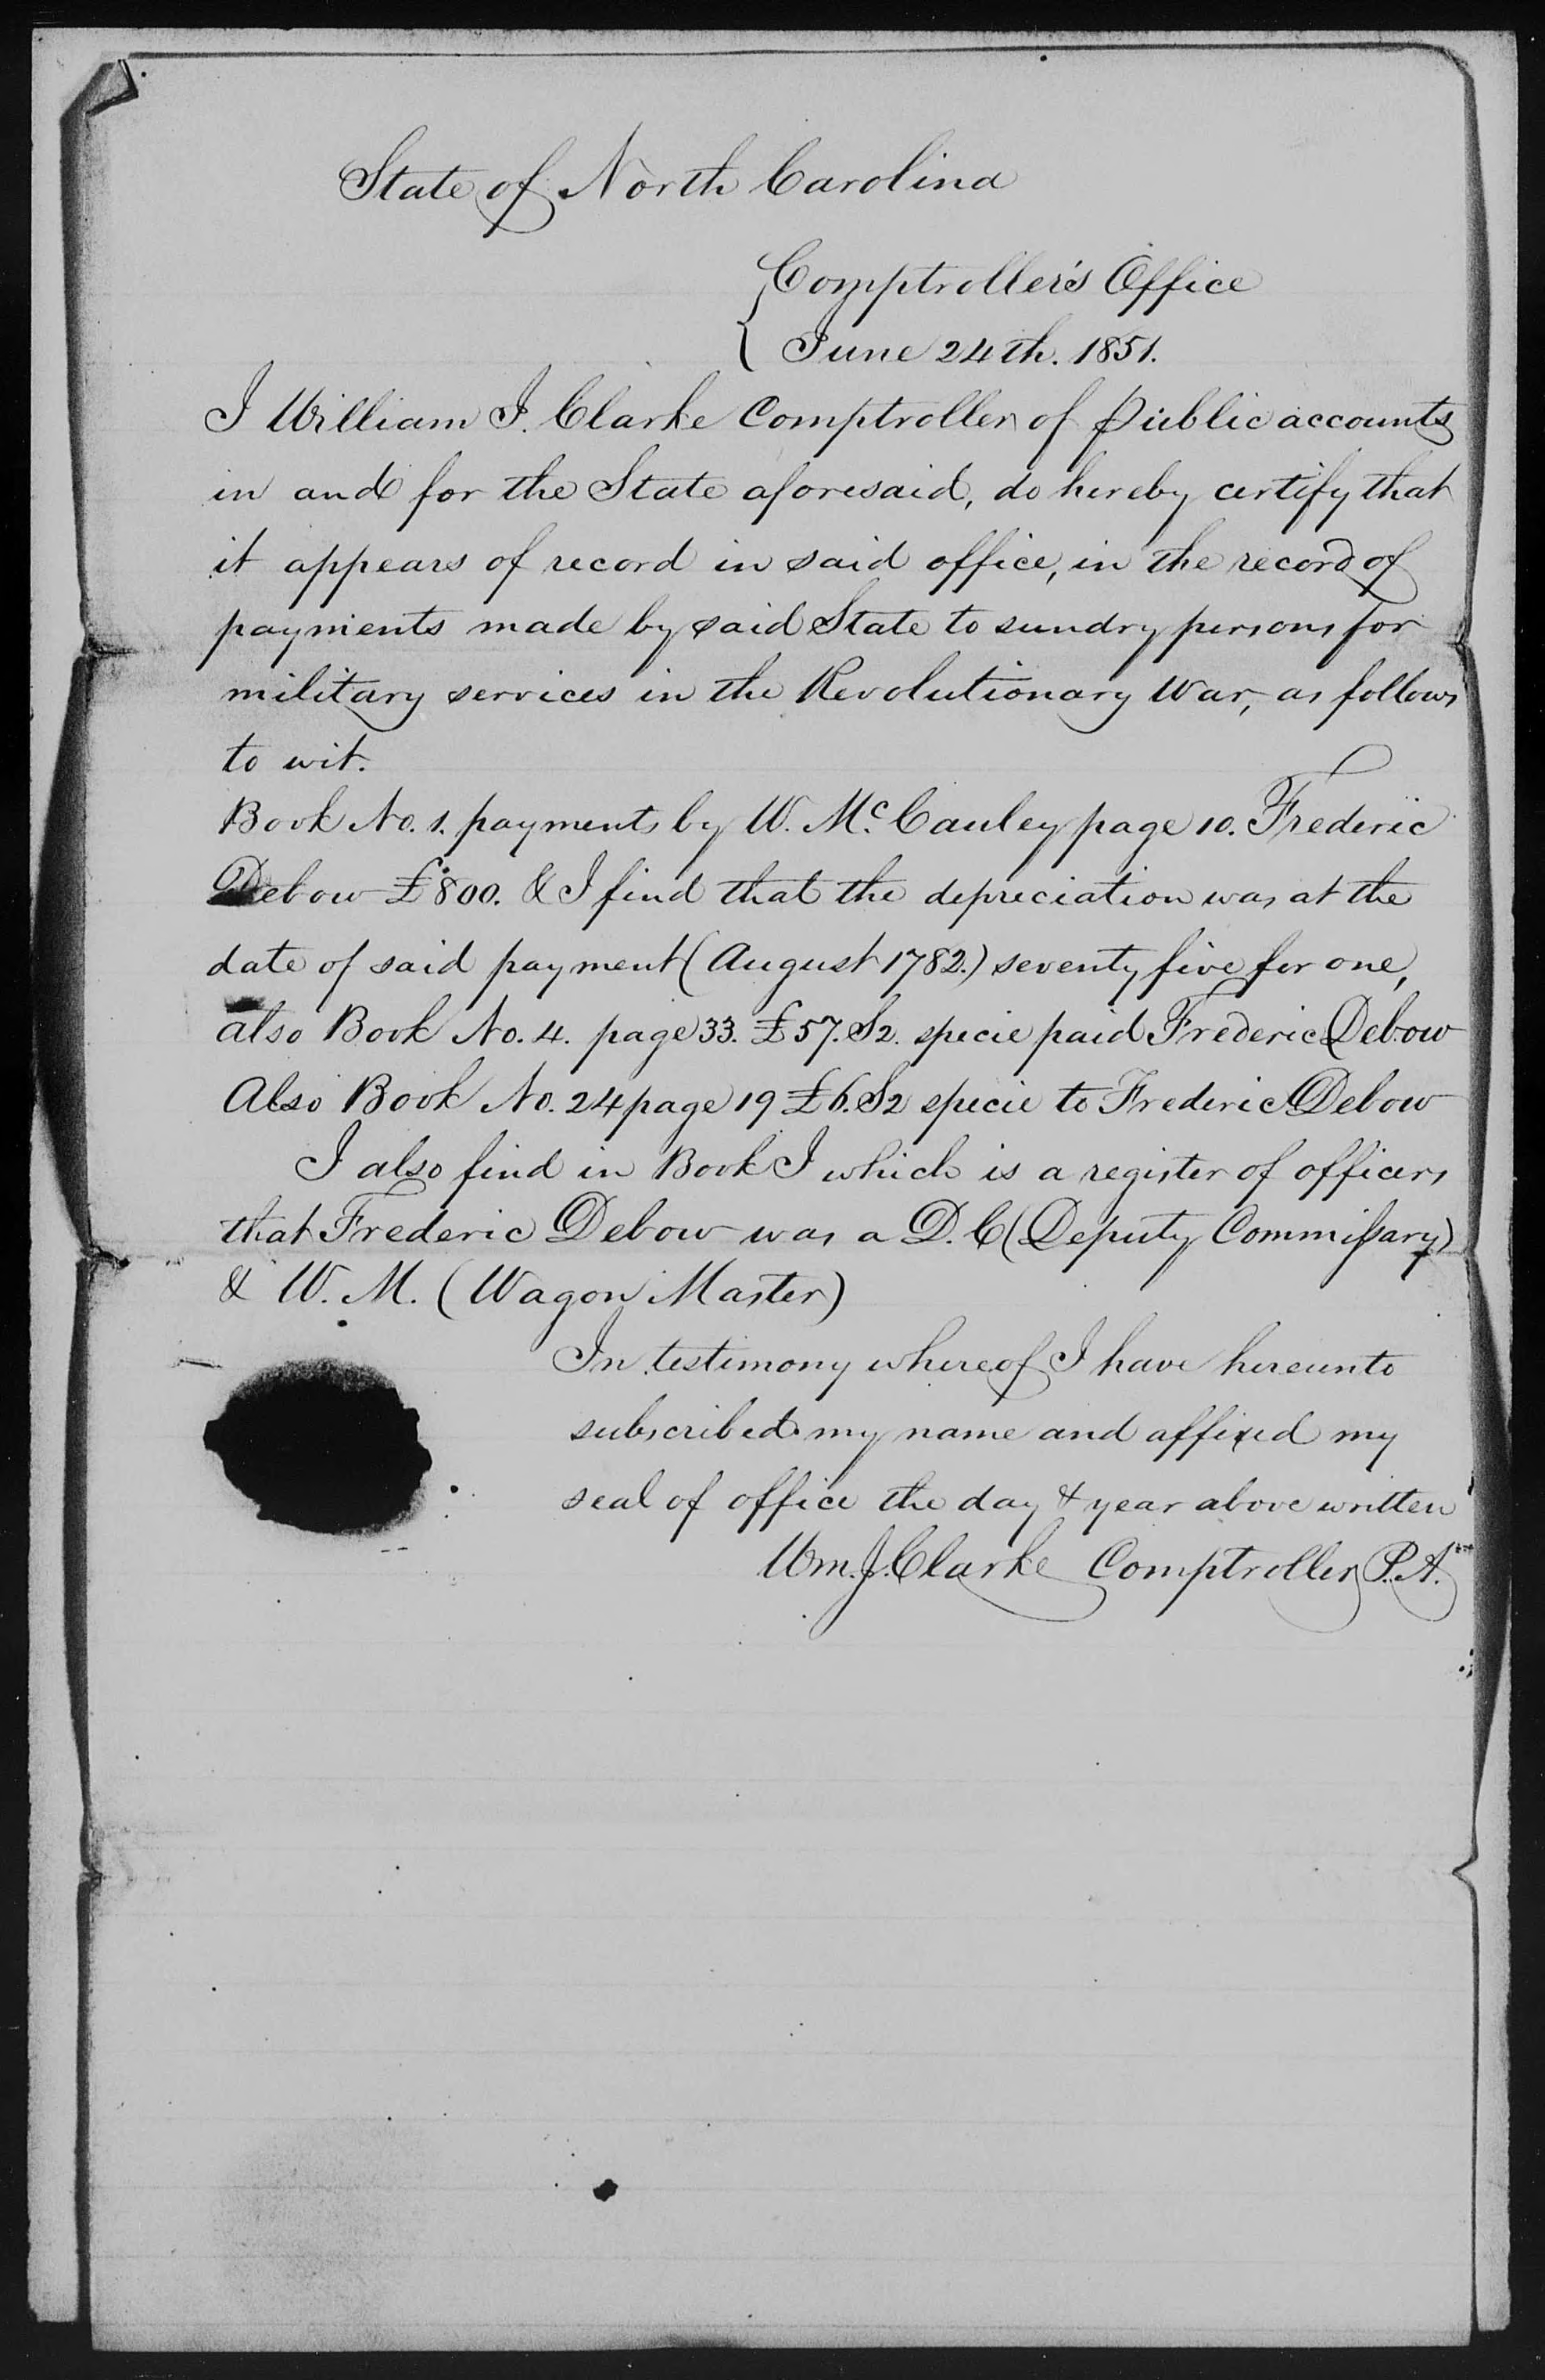 State of North Carolina
Comptroller's Office
June 24th. 1851.
I William J. Clarke Comptroller of Public accounts
in and for the State aforesaid, do hereby certify that
it appears of record in said office, in the record of
payments made by said State to sundry persons for
military services in the Revolutionary War, as follows
to wit.
Book No. 1. payments by W. McCauley page 10. Frederic
Debow £800. & I find that the depreciation was at the
date of said payment (August 1782.) seventy five for one,
also Book No. 4. page 33. £57. S2. specie paid Frederic Debow
Also Book No. 24 page 19 £6. S2 specie to Frederic Debow
I also find in Book I which is a register of officers
that Frederic Debow was a D. C (Deputy Commissary)
& W. M. (Wagon Master)
In testimony whereof I have hereunto
subscribed my name and affixed my
seal of office the day & year above written
Wm. J. Clarke Comptroller P. A.